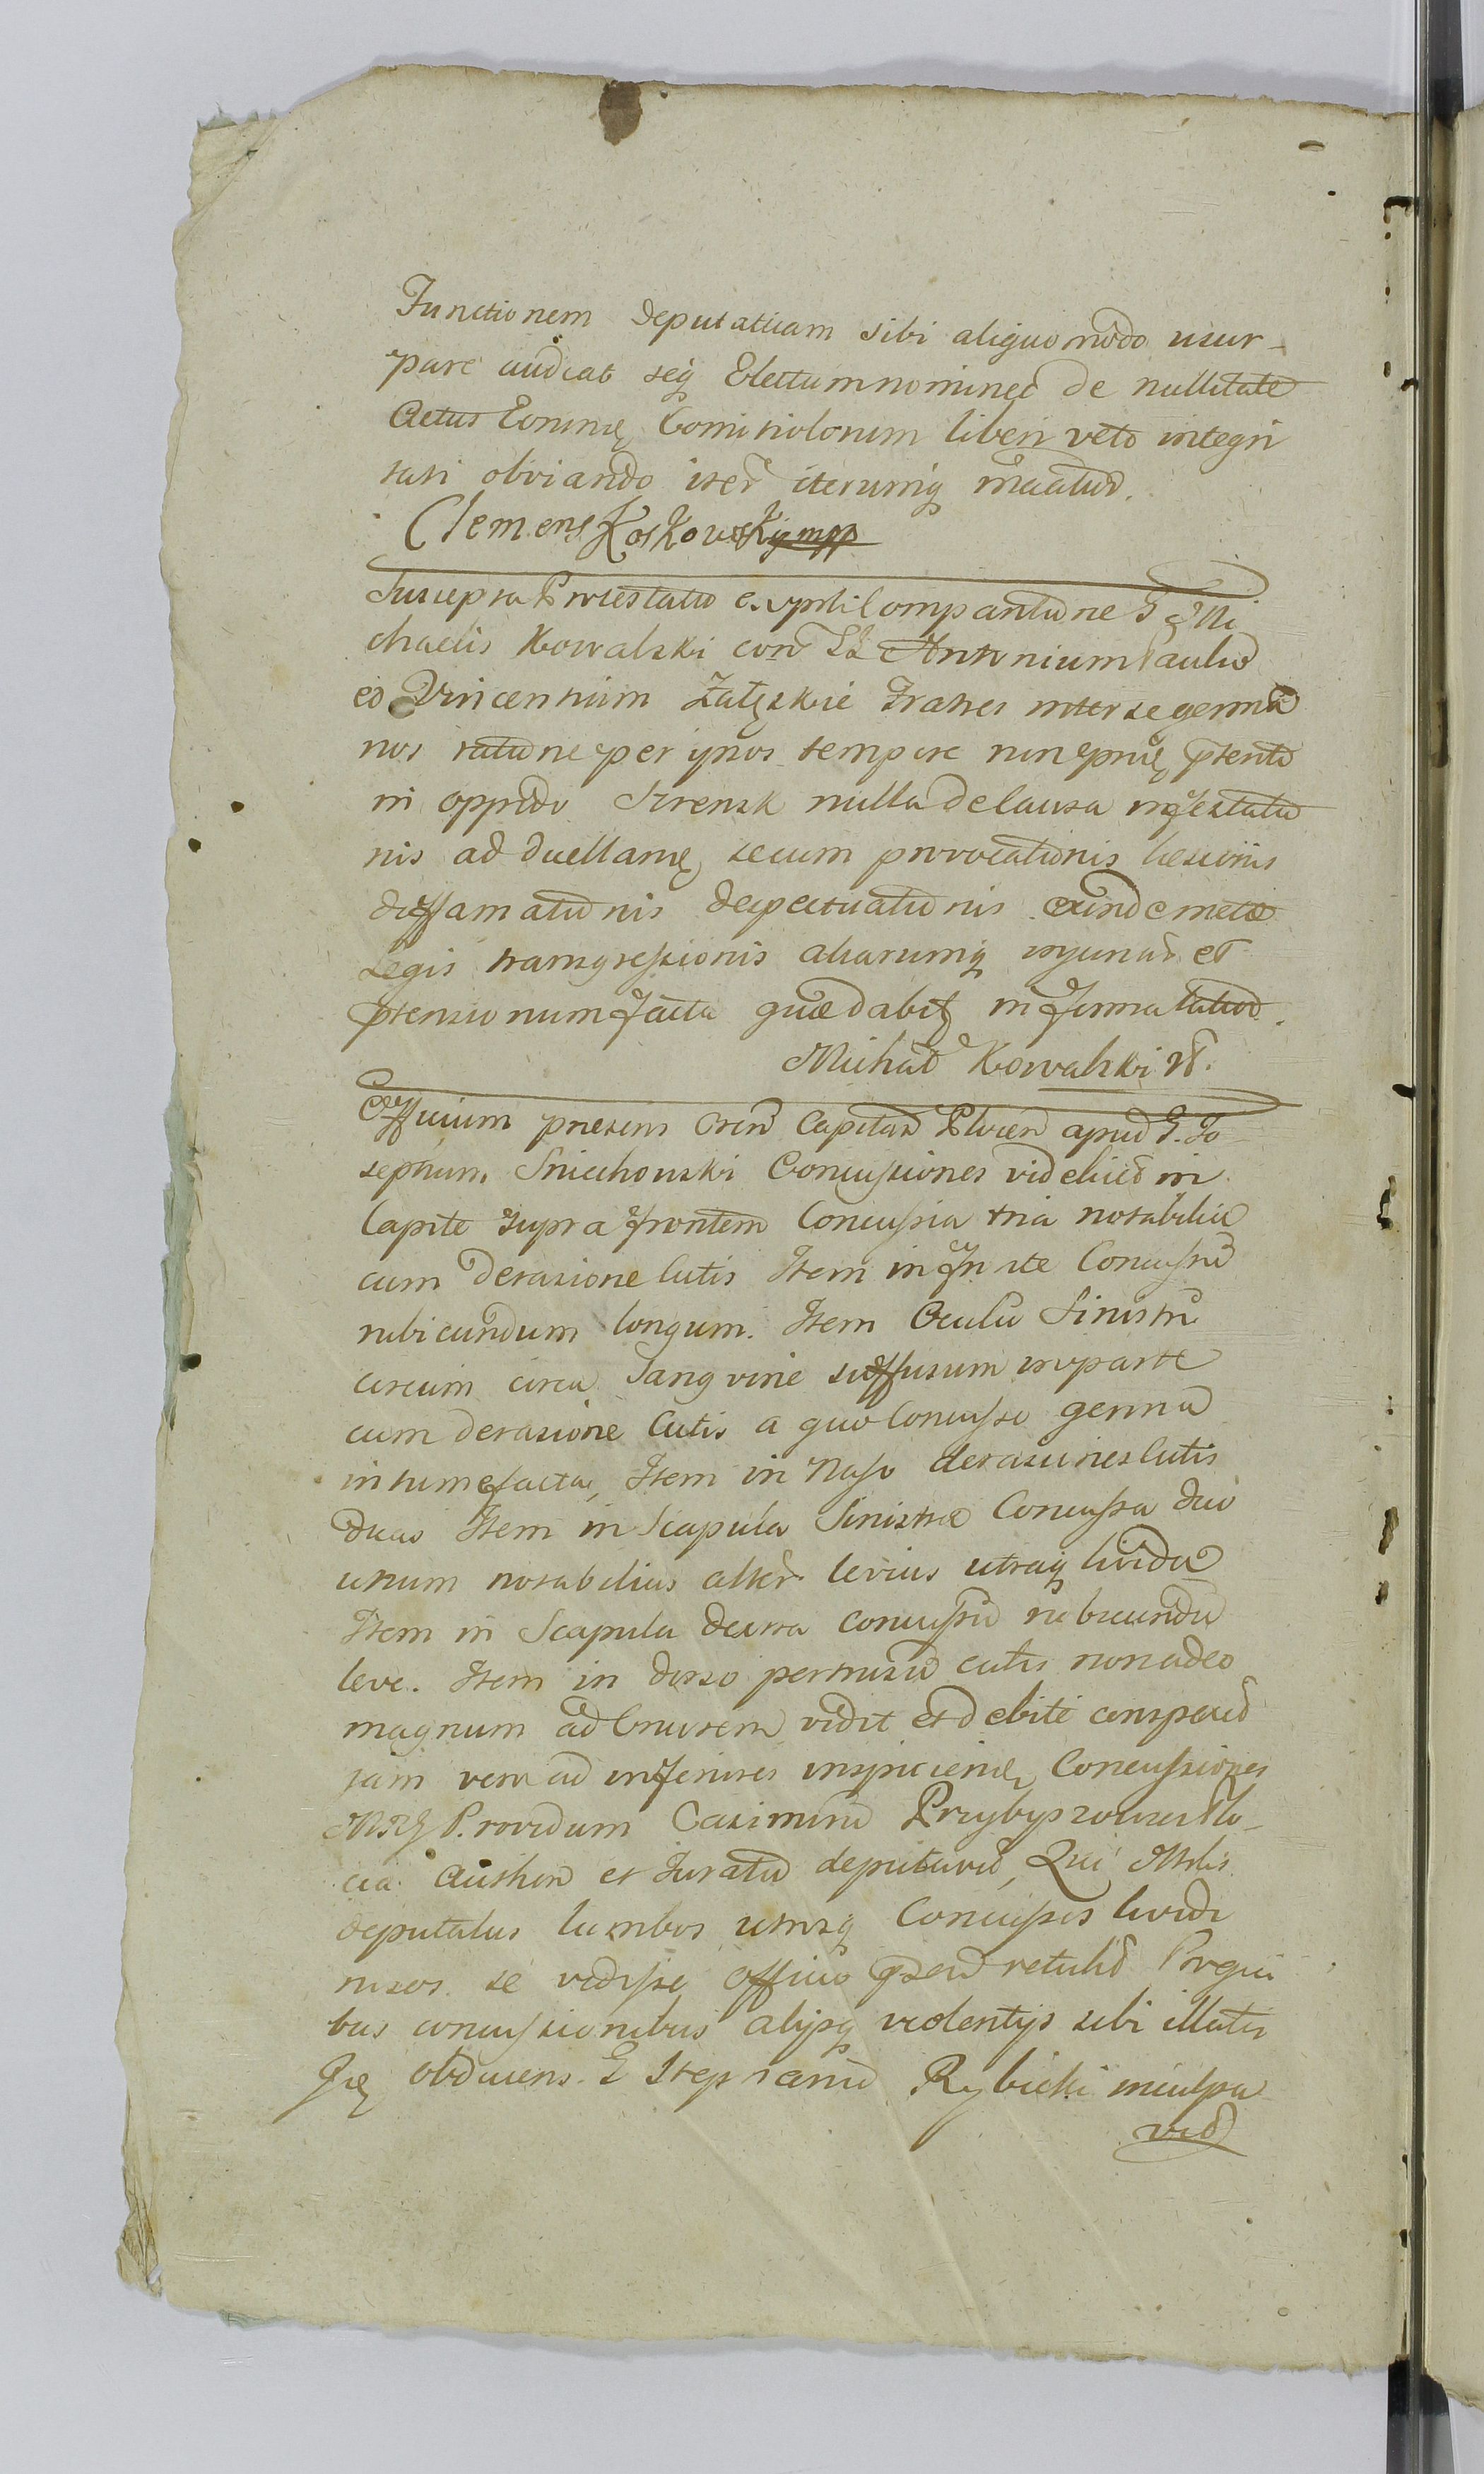 Functionem deputatiam sibi aliquo modo usur-
pare audeat seq Electum nominet de nullitate
Actus Eorumq Comitiolorum liberi veto integri
tati obviando iter iterumq
Clemens Koskowski mpp
Suscepta Protestatio Comparitione G Mi
chaelis Kowalski con GG Antonium Paulu
et Vincentium Załęskie Fratres inter se germa
nos ratione per ipsos tempore
in oppido Szrensk nulla de Causa infestatio
nis ad duellumq secum provocationis laesionis
diffamationis despectuationis
Legis transgressionis aliarumq injuriar et
ptensionum facta quae dabit in forma
Michał Kowalski
Officium praesens Capitan Plocen apud G. Jo
sephum Sniechowski Concussiones videlicet in
Capite supra frontem Concussia tria notabilia
cum derasione Cutis Item in Fronte Concussu
rubicundum longum. Item Oculu Sinistru
circum circa Sangvine suffusum in parte
cum derasione Cutis a quo Concusso genna
intumefacta, Item in Naso derasiones Cutis
duas Item in Scapula Sinistra Concussa duo
unum notabilius alter levius utraq livida
Item in Scapula dextra concussu rubicundu
leve. Item in dorso pertusu cutis non adeo
magnum ad Cruorem vidit et debite conspexit
jam vero ad inferiores inspiciend Concussiones
Providum Casimiru
et Juratu deputavit, Qui
deputatus lumbos utrosq Concussos livido
rusos se vidisse officio retulit Pro qui
bus concussionibus alijsq violentijs sibi illatis
obducens G Stephanu Rybicki inculpa
vit